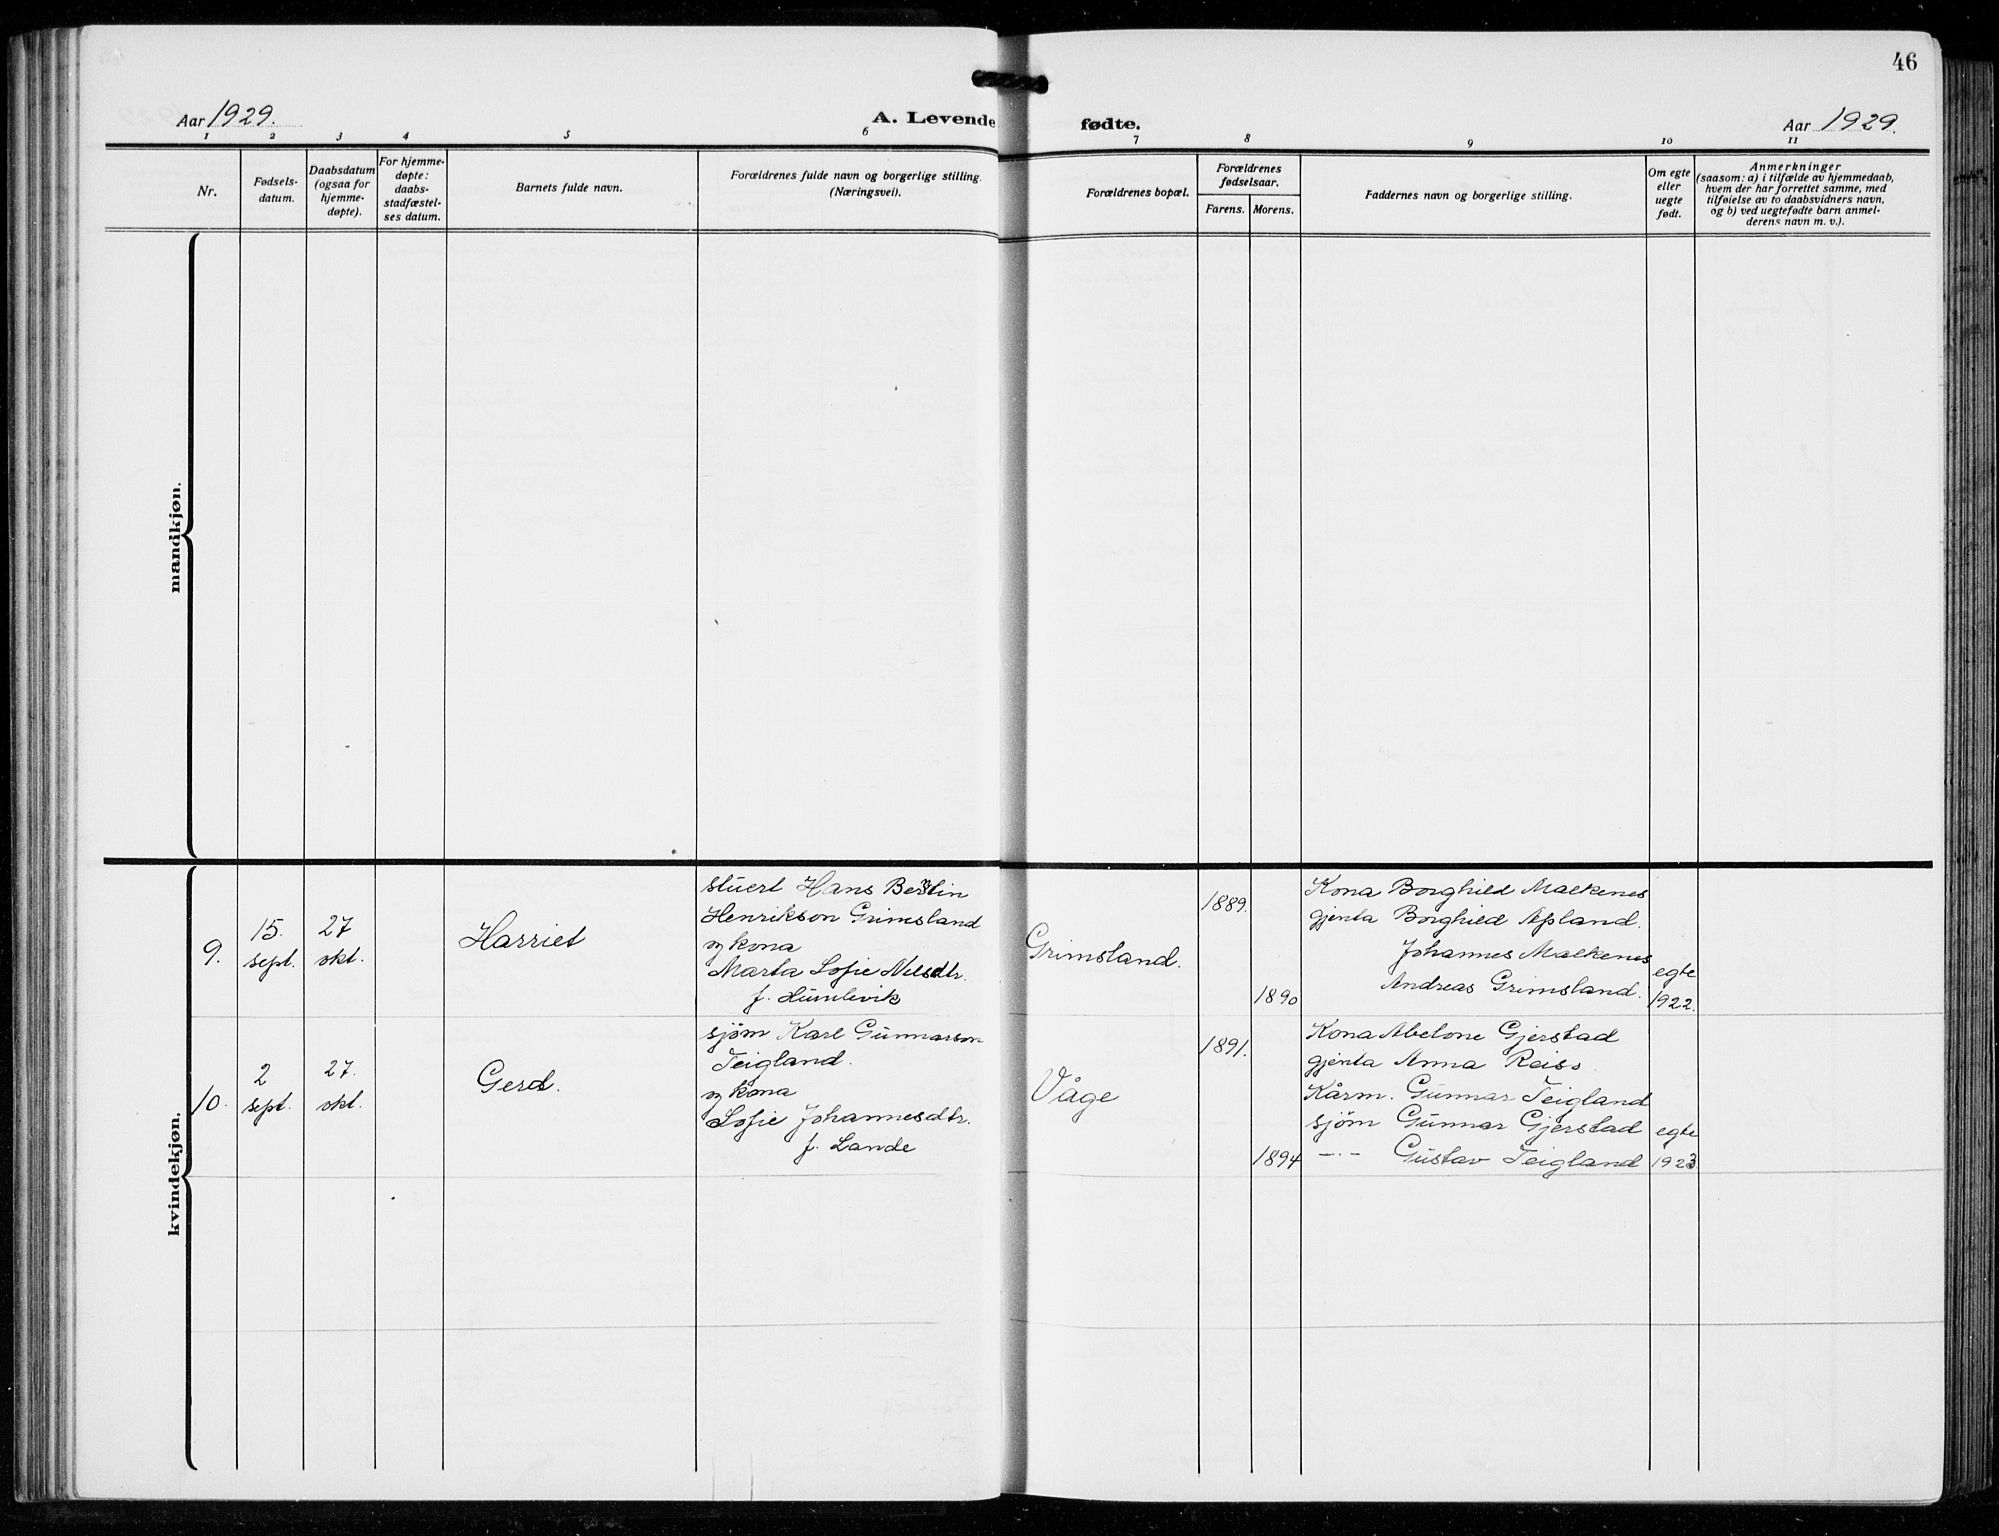 46
Aar 1929.
A. Levende fødte.
Aar 1929.
1 2 3 4 5 6 7 8 9 10 11
Nr.
Fødsels-
datum.
Daabsdatum
(ogsaa for
hjemme-
døpte).
For hjemme-
døpte:
daabs-
stadfæstel-
ses datum.
Barnets fulde navn.
Forældrenes fulde navn og borgerlige stilling.
(Næringsvei).
Forældrenes bopæl.
Forældrenes
fødselsaar.
Farens. Morens.
Faddernes navn og borgerlige stilling.
Om egte
eller
uegte
født.
Anmerkninger
(saasom: a) i tilfælde av hjemmedaab,
hvem der har forrettet samme, med
tilføielse av to daabsvidners navn,
og b) ved uegtefødte barn anmel-
derens navn m. v.).
mandkjøn.
kvindekjøn.
9.
15.
sept.
27
okt.
Harriet
stuert Hans Bertin
Henrikson Grimsland
og kona
Marta Sofie Nilsdtr.
f. Humlevik
Grimsland.
1889.
1890
Kona Borghild Malkenes
gjenta Borghild Apland.
Johannes Malkenes
Andreas Grimsland.
egte
1922.
10.
2
sept.
27.
okt.
Gerd.
sjøm Karl Gunnarson
Teigland.
og kona
Sofie Johannesdtr.
f. Lande
Våge
1891.
1894
Kona Abelone Gjerstad
gjenta Anna Reiso
Kårm. Gunnar Teigland
sjøm Gunnar Gjerstad
-"- Gustav Teigland
egte
1923